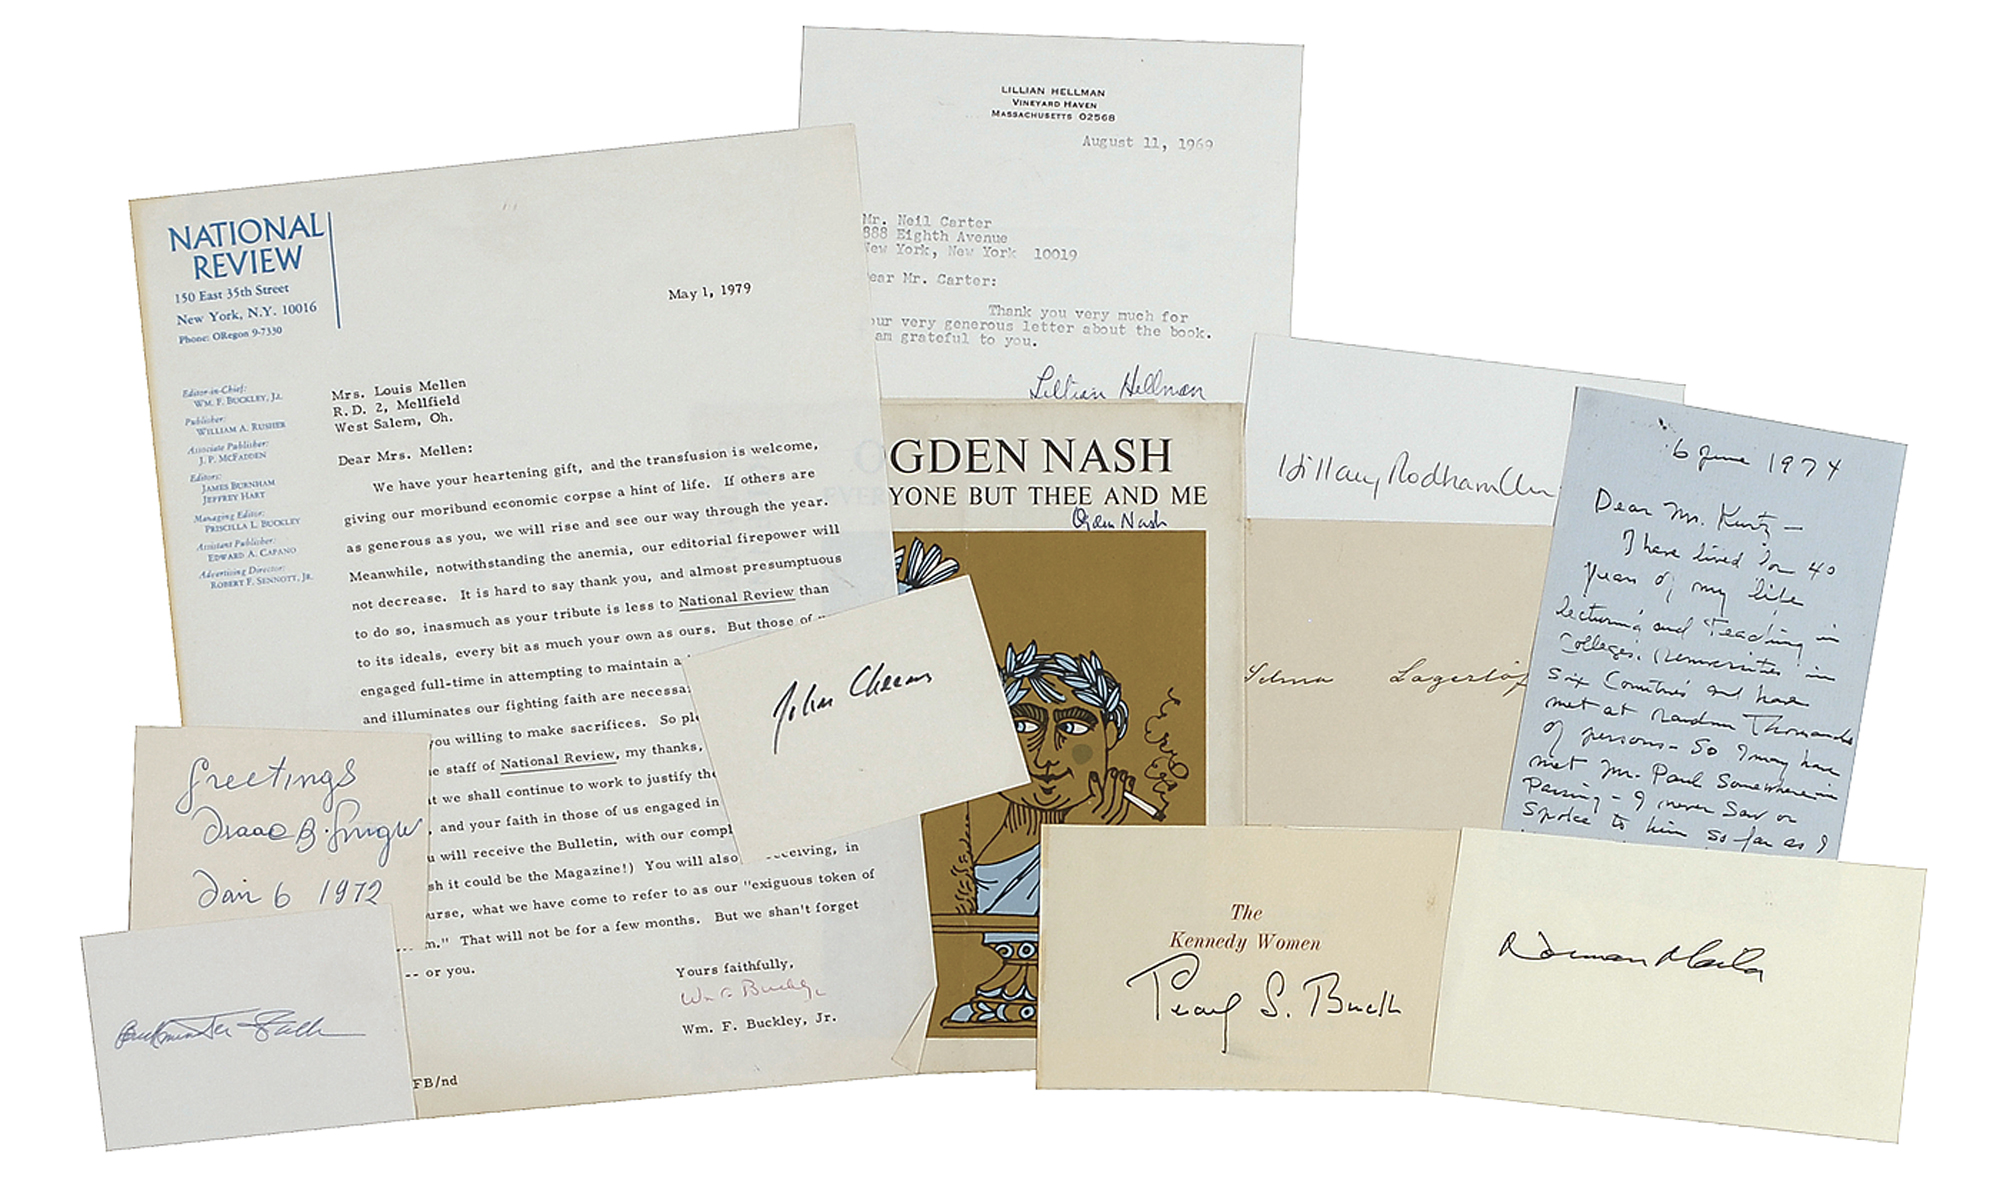 LILLIAN HELLMAN
VINEYARD HAVEN
MASSACHUSETTS 02568
August 11, 1969
Mr. Neil Carter
888 Eighth Avenue
New York, New York 10019
ear Mr. Carter:
Thank you very much for
our very generous letter about the book.
am grateful to you.
Lillian Hellman
NATIONAL
REVIEW
150 East 35th Street
New York, N.Y. 10016
Phone: ORegon 9-7330
Editor-in-Chief:
WM. F. BUCKLEY, JR.
Publisher:
WILLIAM A. RUSHER
Associate Publisher:
J. P. MCFADDEN
Editors:
JAMES BURNHAM
JEFFREY HART
Managing Editor:
PRISCILLA L. BUCKLEY
Assistant Publisher:
EDWARD A. CAPANO
Advertising Director:
ROBERT F. SENNOTT, JR.
May 1, 1979
Mrs. Louis Mellen
R.D. 2, Mellfield
West Salem, Oh.
Dear Mrs. Mellen:
We have your heartening gift, and the transfusion is welcome,
giving our moribund economic corpse a hint of life. If others are
as generous as you, we will rise and see our way through the year.
Meanwhile, notwithstanding the anemia, our editorial firepower will
not decrease. It is hard to say thank you, and almost presumptuous
to do so, inasmuch as your tribute is less to National Review than
to its ideals, every bit as much your own as ours. But those of
engaged full-time in attempting to maintain a
and illuminates our fighting faith are necessa
you willing to make sacrifices. So ple
e staff of National Review, my thanks,
t we shall continue to work to justify the
, and your faith in those of us engaged in
u will receive the Bulletin, with our compl
sh it could be the Magazine!) You will also eceiving, in
urse, what we have come to refer to as our "exiguous token of
m." That will not be for a few months. But we shan't forget
-- or you.
Yours faithfully,
Wm F Buckley
Wm. F. Buckley, Jr.
FB/nd
OGDEN NASH
EVERYONE BUT THEE AND ME
Ogden Nash
John Cheever
Hillary Rodham Clin
Selma Lagerlöf
6 June 1974
Dear Mr. Kurtz -
I have lived for 40
years of my life
lecturing and teaching in
Colleges, Universities in
Six Countries and have
met at random Thousands
of persons - So I may have
met Mr. Paul Somewhere in
Passing - I never saw or
Spoke to him so far as I
Greetings
Isaac B. Singer
Jan 6 1972
Buckminster Fuller
The
Kennedy Women
Pearl S. Buck
Norman Mailer